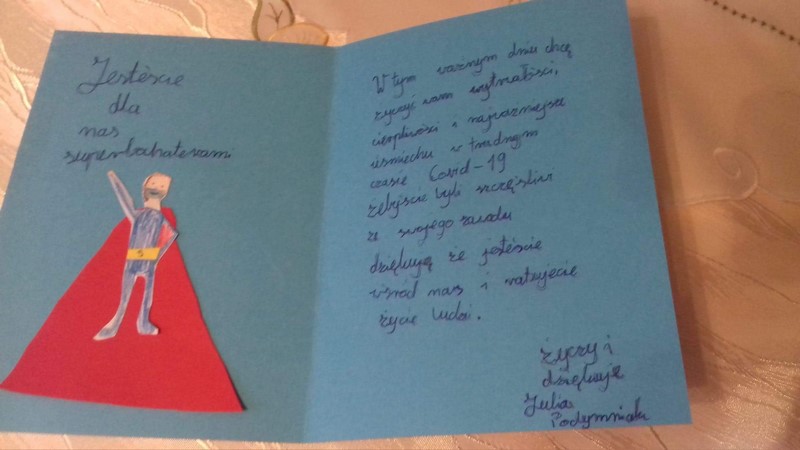 Jesteście
dla
nas
superbohaterami
W tym ważnym dniu chcę
życzyć wam wytrwałości,
cierpliwości i najważniejsze
uśmiechu w trudnym
czasie Covid-19
żebyście byli szczęśliwi
ze swojego zawodu
dziękuję że jesteście
wśród nas i ratujecie
życie ludzi.
życzy i
dziękuje
Julia
Podymniak
S